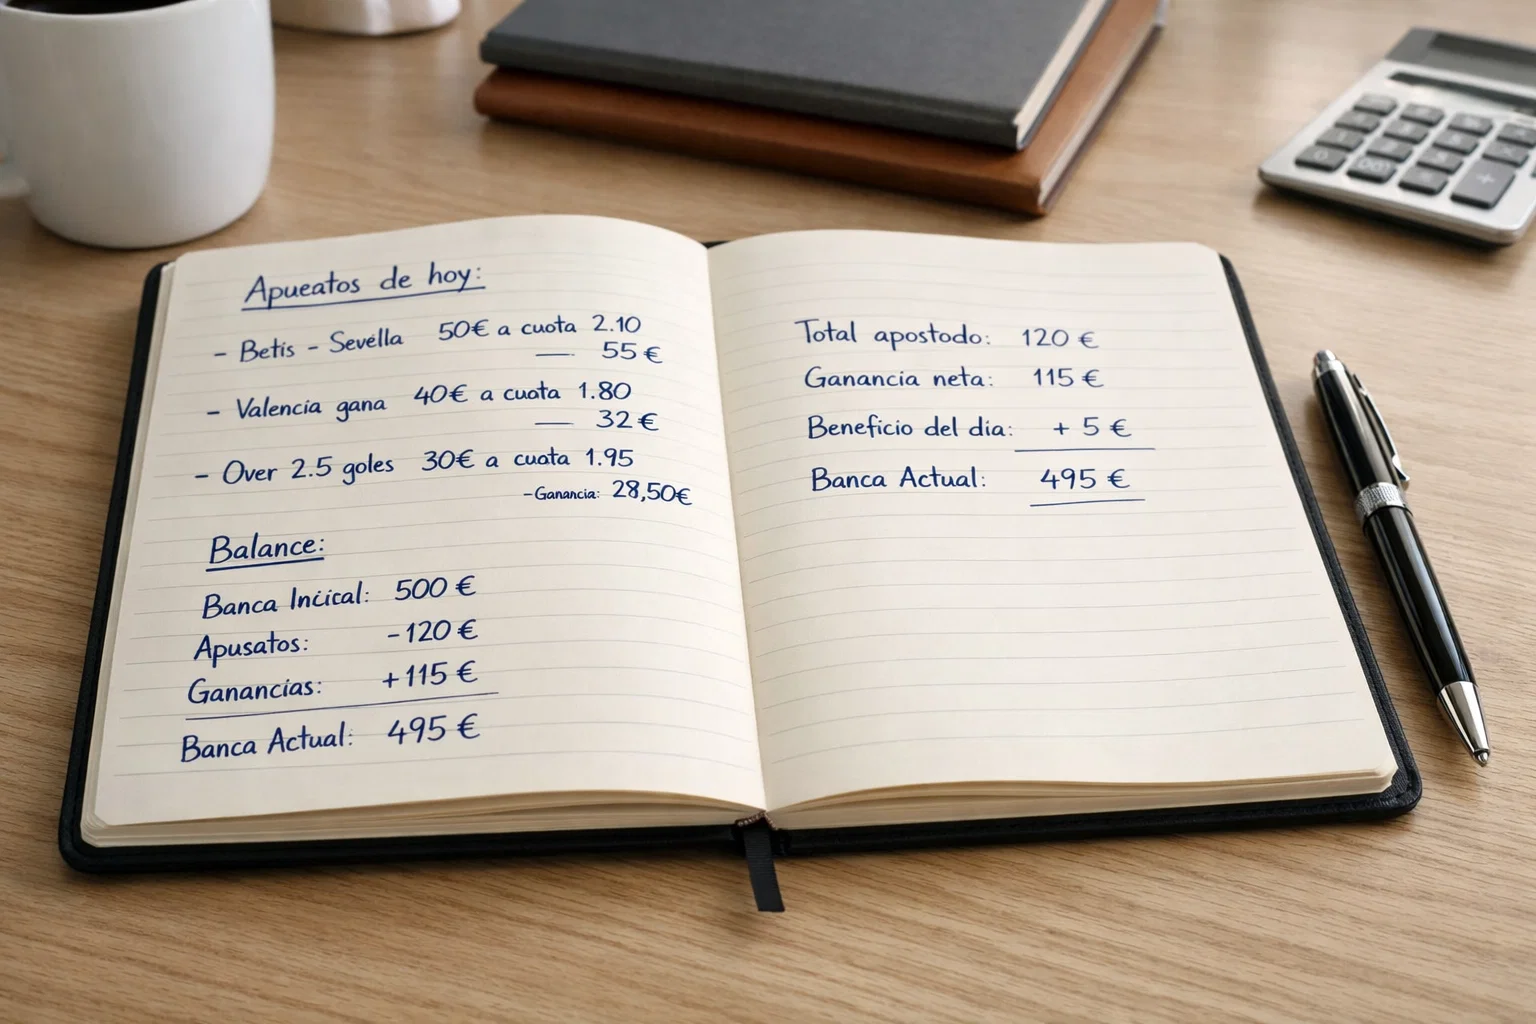 Apueatos de hoy:
- Betis - Sevélla 50€ a cuota 2.10
— 55 €
- Valencia gana 40€ a cuota 1.80
— 32 €
- Over 2.5 goles 30€ a cuata 1.95
- Ganancia: 28,50€
Balance:
Banca Inícical: 500 €
Apusatos: -120 €
Ganancías: +115 €
Banca Actual: 495 €
Total apostodo: 120 €
Ganancia neta: 115 €
Beneficio del dia: + 5 €
Banca Actual: 495 €